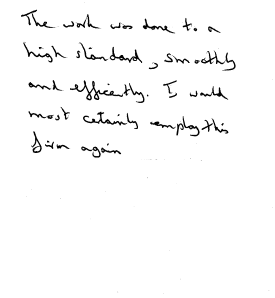 The work was done to a
high standard, smoothly
and efficiently. I would
most certainly employ this
firm again